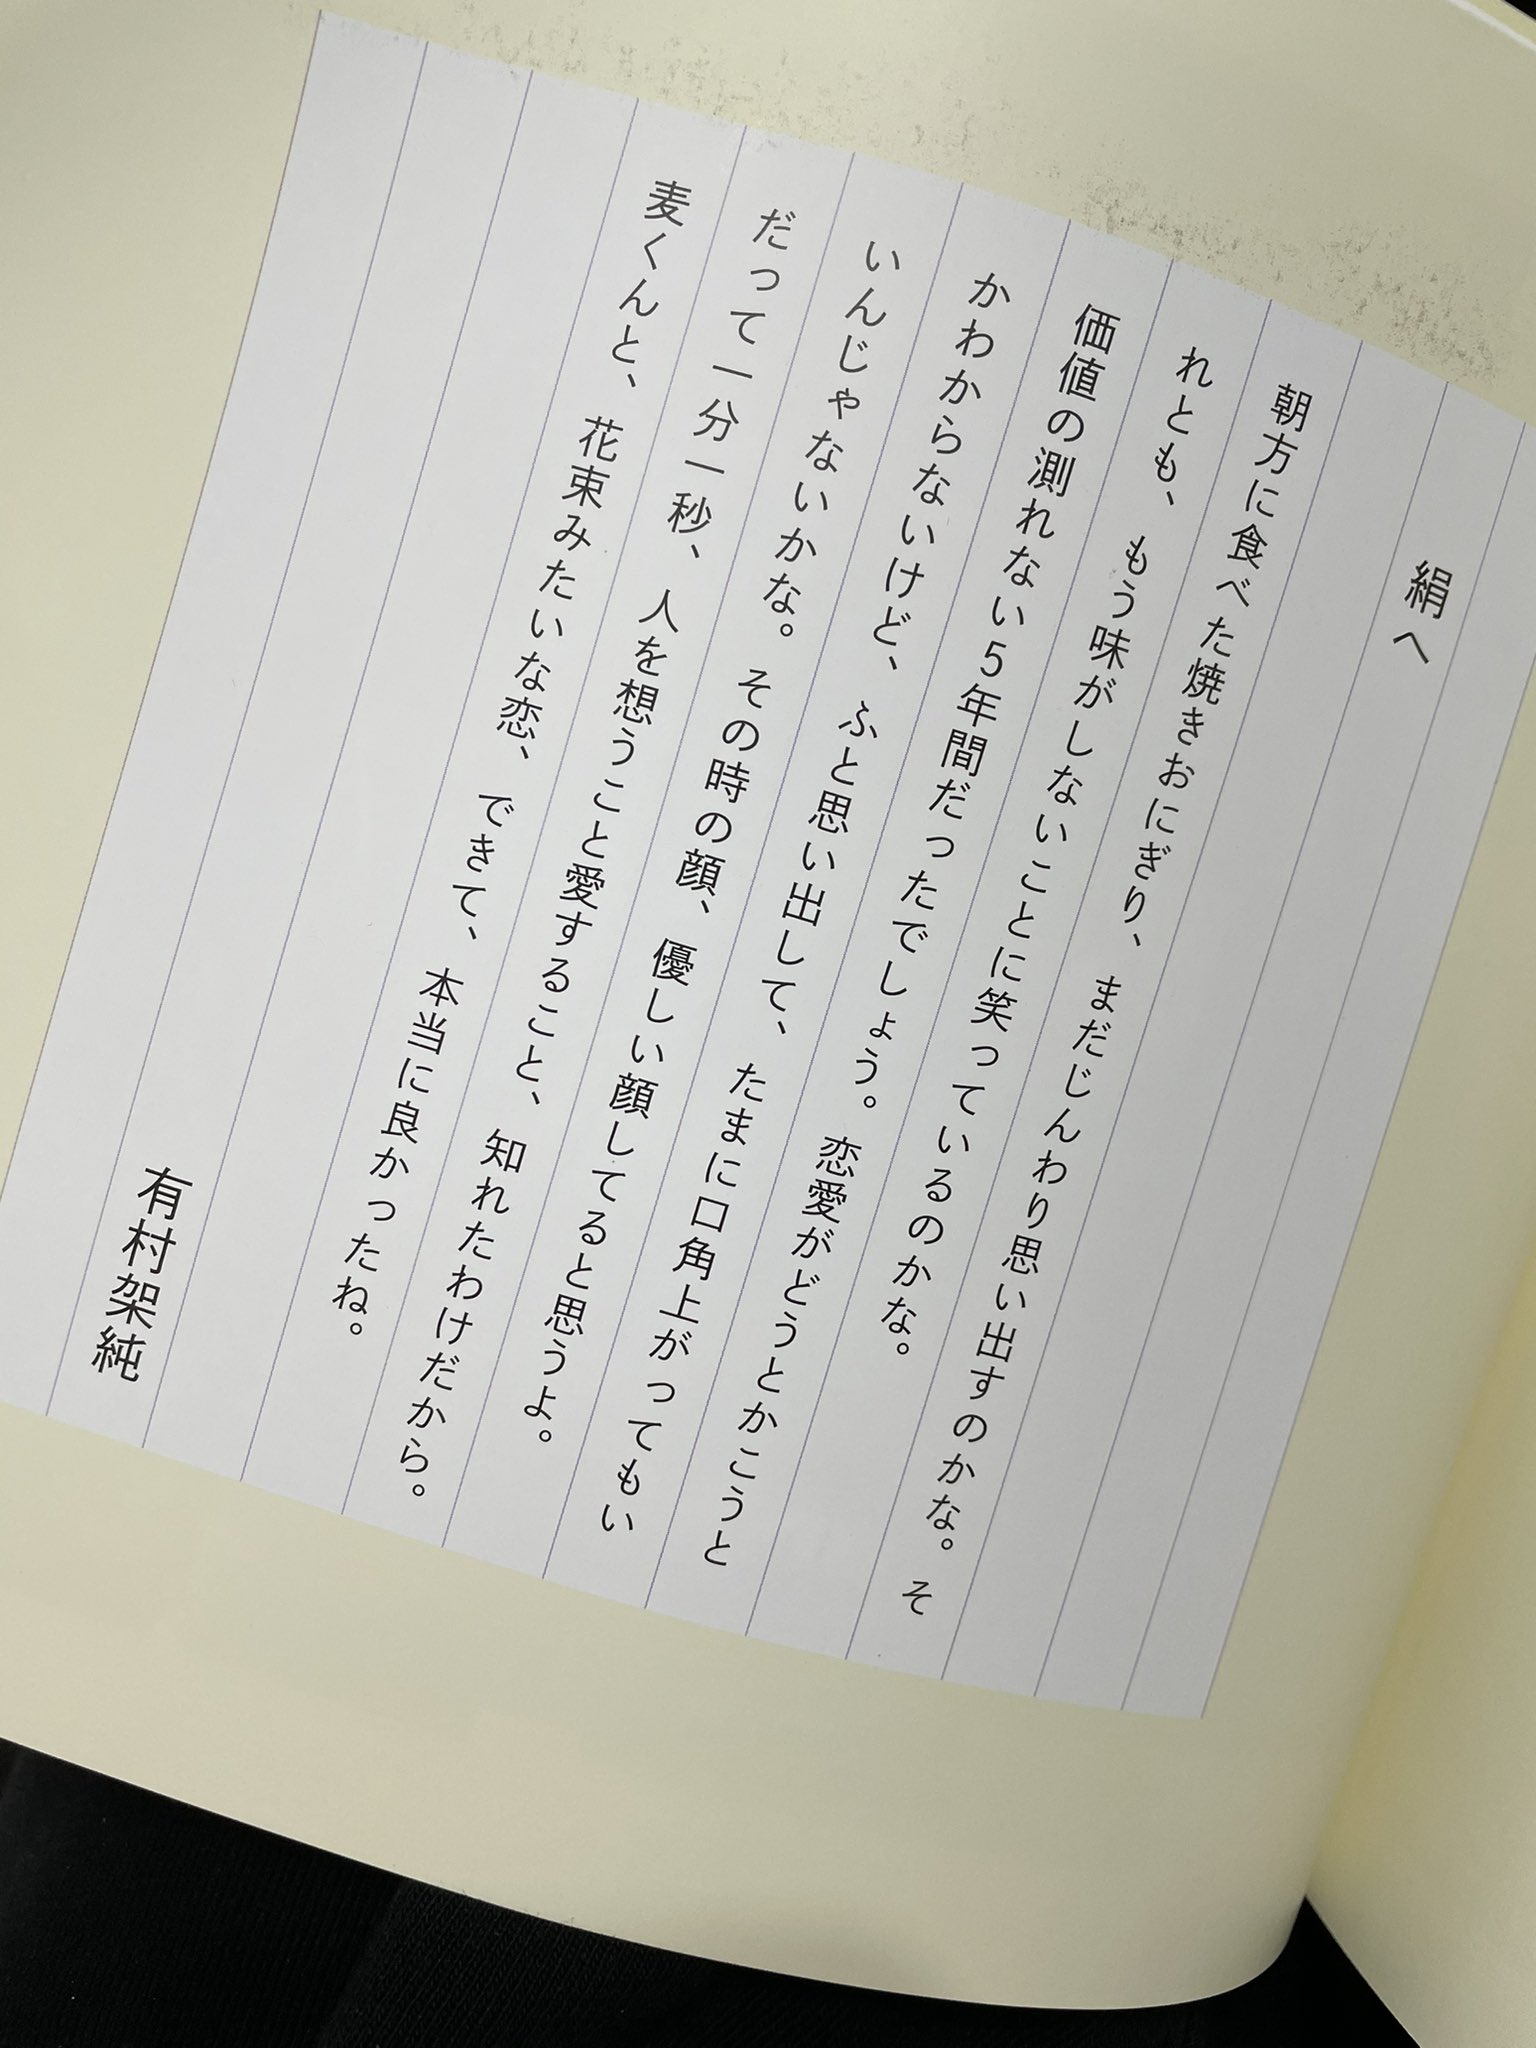 絹へ
朝方に食べた焼きおにぎり、まだじんわり思い出すのかな。そ
れとも、もう味がしないことに笑っているのかな。
価値の測れない5年間だったでしょう。恋愛がどうとかこうと
かわからないけど、ふと思い出して、たまに口角上がってもい
いんじゃないかな。その時の顔、優しい顔してると思うよ。
だって一分一秒、人を想うこと愛すること、知れたわけだから。
麦くんと、花束みたいな恋、できて、本当に良かったね。
有村架純